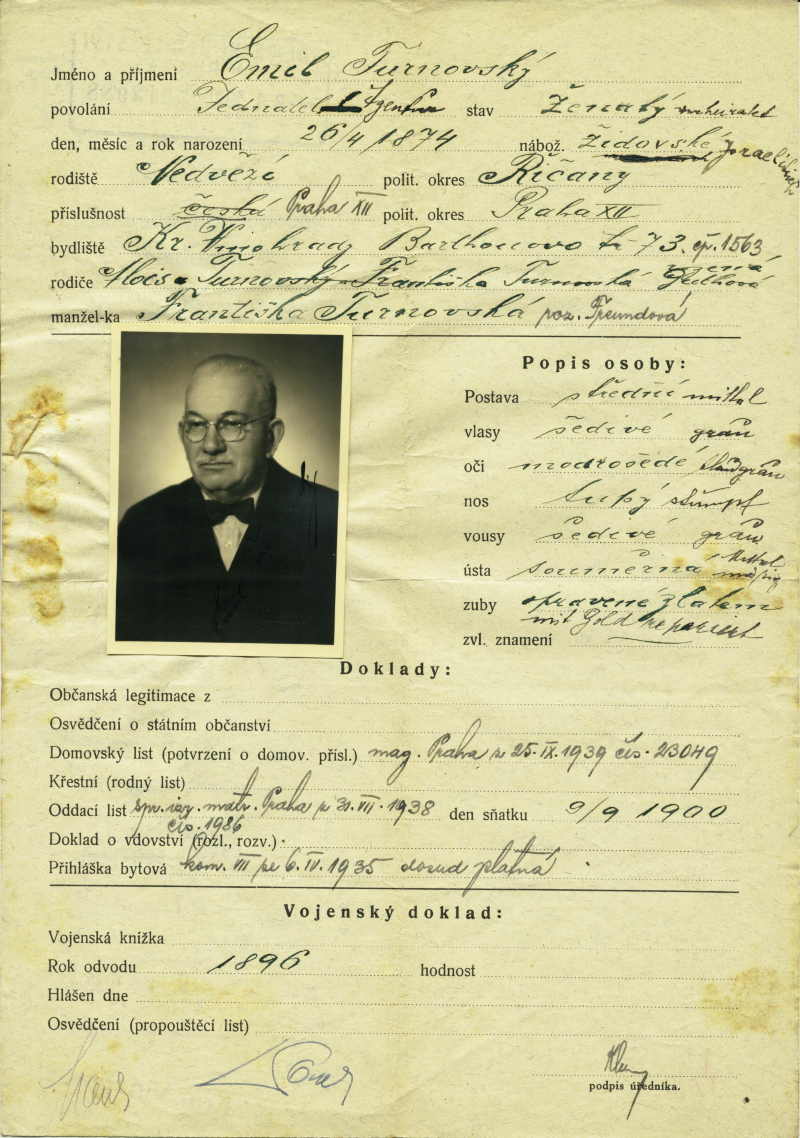 Jméno a příjmení Emil Turnovský
povolání Jednatel Agentur stav Ženatý verheiratet
den, měsíc a rok narození 26/4 1874 nábož. židovské israelitisch
rodiště Nedvězí polit. okres Říčany
příslušnost česká Praha XII polit. okres Praha XII
bydliště Kr. Vinohrady Barthouovo tř 73. čp. 1563
rodiče Alois Turnovský Františka Turnovská
manžel-ka Františka Turnovská roz. Freundová
Popis osoby:
Postava střední mittel
vlasy šedivé grau
oči modrošedé blaugrau
nos tupý stumpf
vousy šedivé grau
ústa souměrná
zuby spravené zlatem
mit Gold repariert
zvl. znamení
Doklady:
Občanská legitimace z
Osvědčení o státním občanství
Domovský list (potvrzení o domov. přísl.) mag. Praha z 25.IX.1939 čís. 23049
Křestní (rodný list)
Oddací list izr. matr. Praha z 21.VII.1938 den sňatku 9/9 1900
čís. 1986
Doklad o vdovství (rozl., rozv.)
Přihláška bytová kom. VII ze 6.IV.1935 dosud platná
Vojenský doklad:
Vojenská knížka
Rok odvodu 1896 hodnost
Hlášen dne
Osvědčení (propouštěcí list)
podpis úředníka.